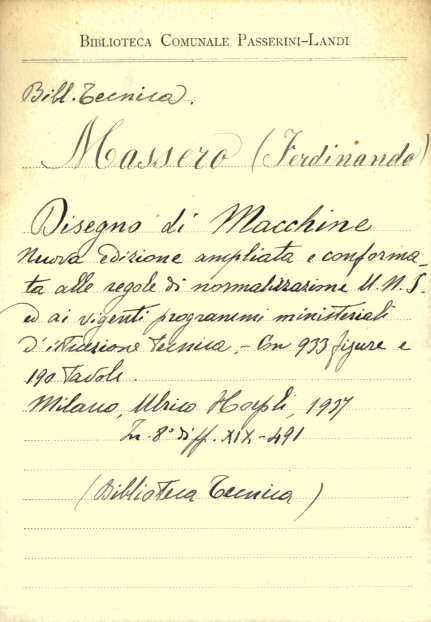 BIBLIOTECA COMUNALE PASSERINI-LANDI
Bibl. Tecnica.
Massero (Ferdinando)
Disegno di Macchine
Nuova edizione ampliata e conforma-
ta alle regole di normalizzazione U.N.I.
ed ai vigenti programmi ministeriali
d'istruzione tecnica. - Con 933 figure e
190 tavole.
Milano, Ulrico Hoepli, 1937
In 8° diff. XIX-491
(Biblioteca Tecnica)